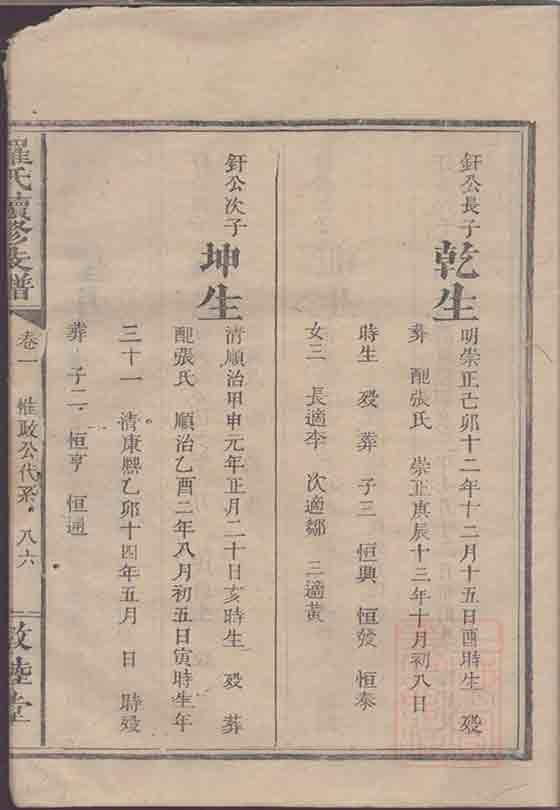 釬公長子
乾生
明崇正己卯十二年十二月十五日酉時生 歿
葬 配張氏 崇正庚辰十三年十月初八日
時生 歿 葬 子三 恒興 恒發 恒泰
女三 長適李 次適鄒 三適黃
釬公次子
坤生
清順治甲申元年正月二十日亥時生 歿 葬
配張氏 順治乙酉二年八月初五日寅時生年
三十一 清康熙乙卯十四年五月 日 時歿
葬 子二 恒亨 恒通
羅氏續修支譜
卷一 惟政公代系 八六
敦睦堂